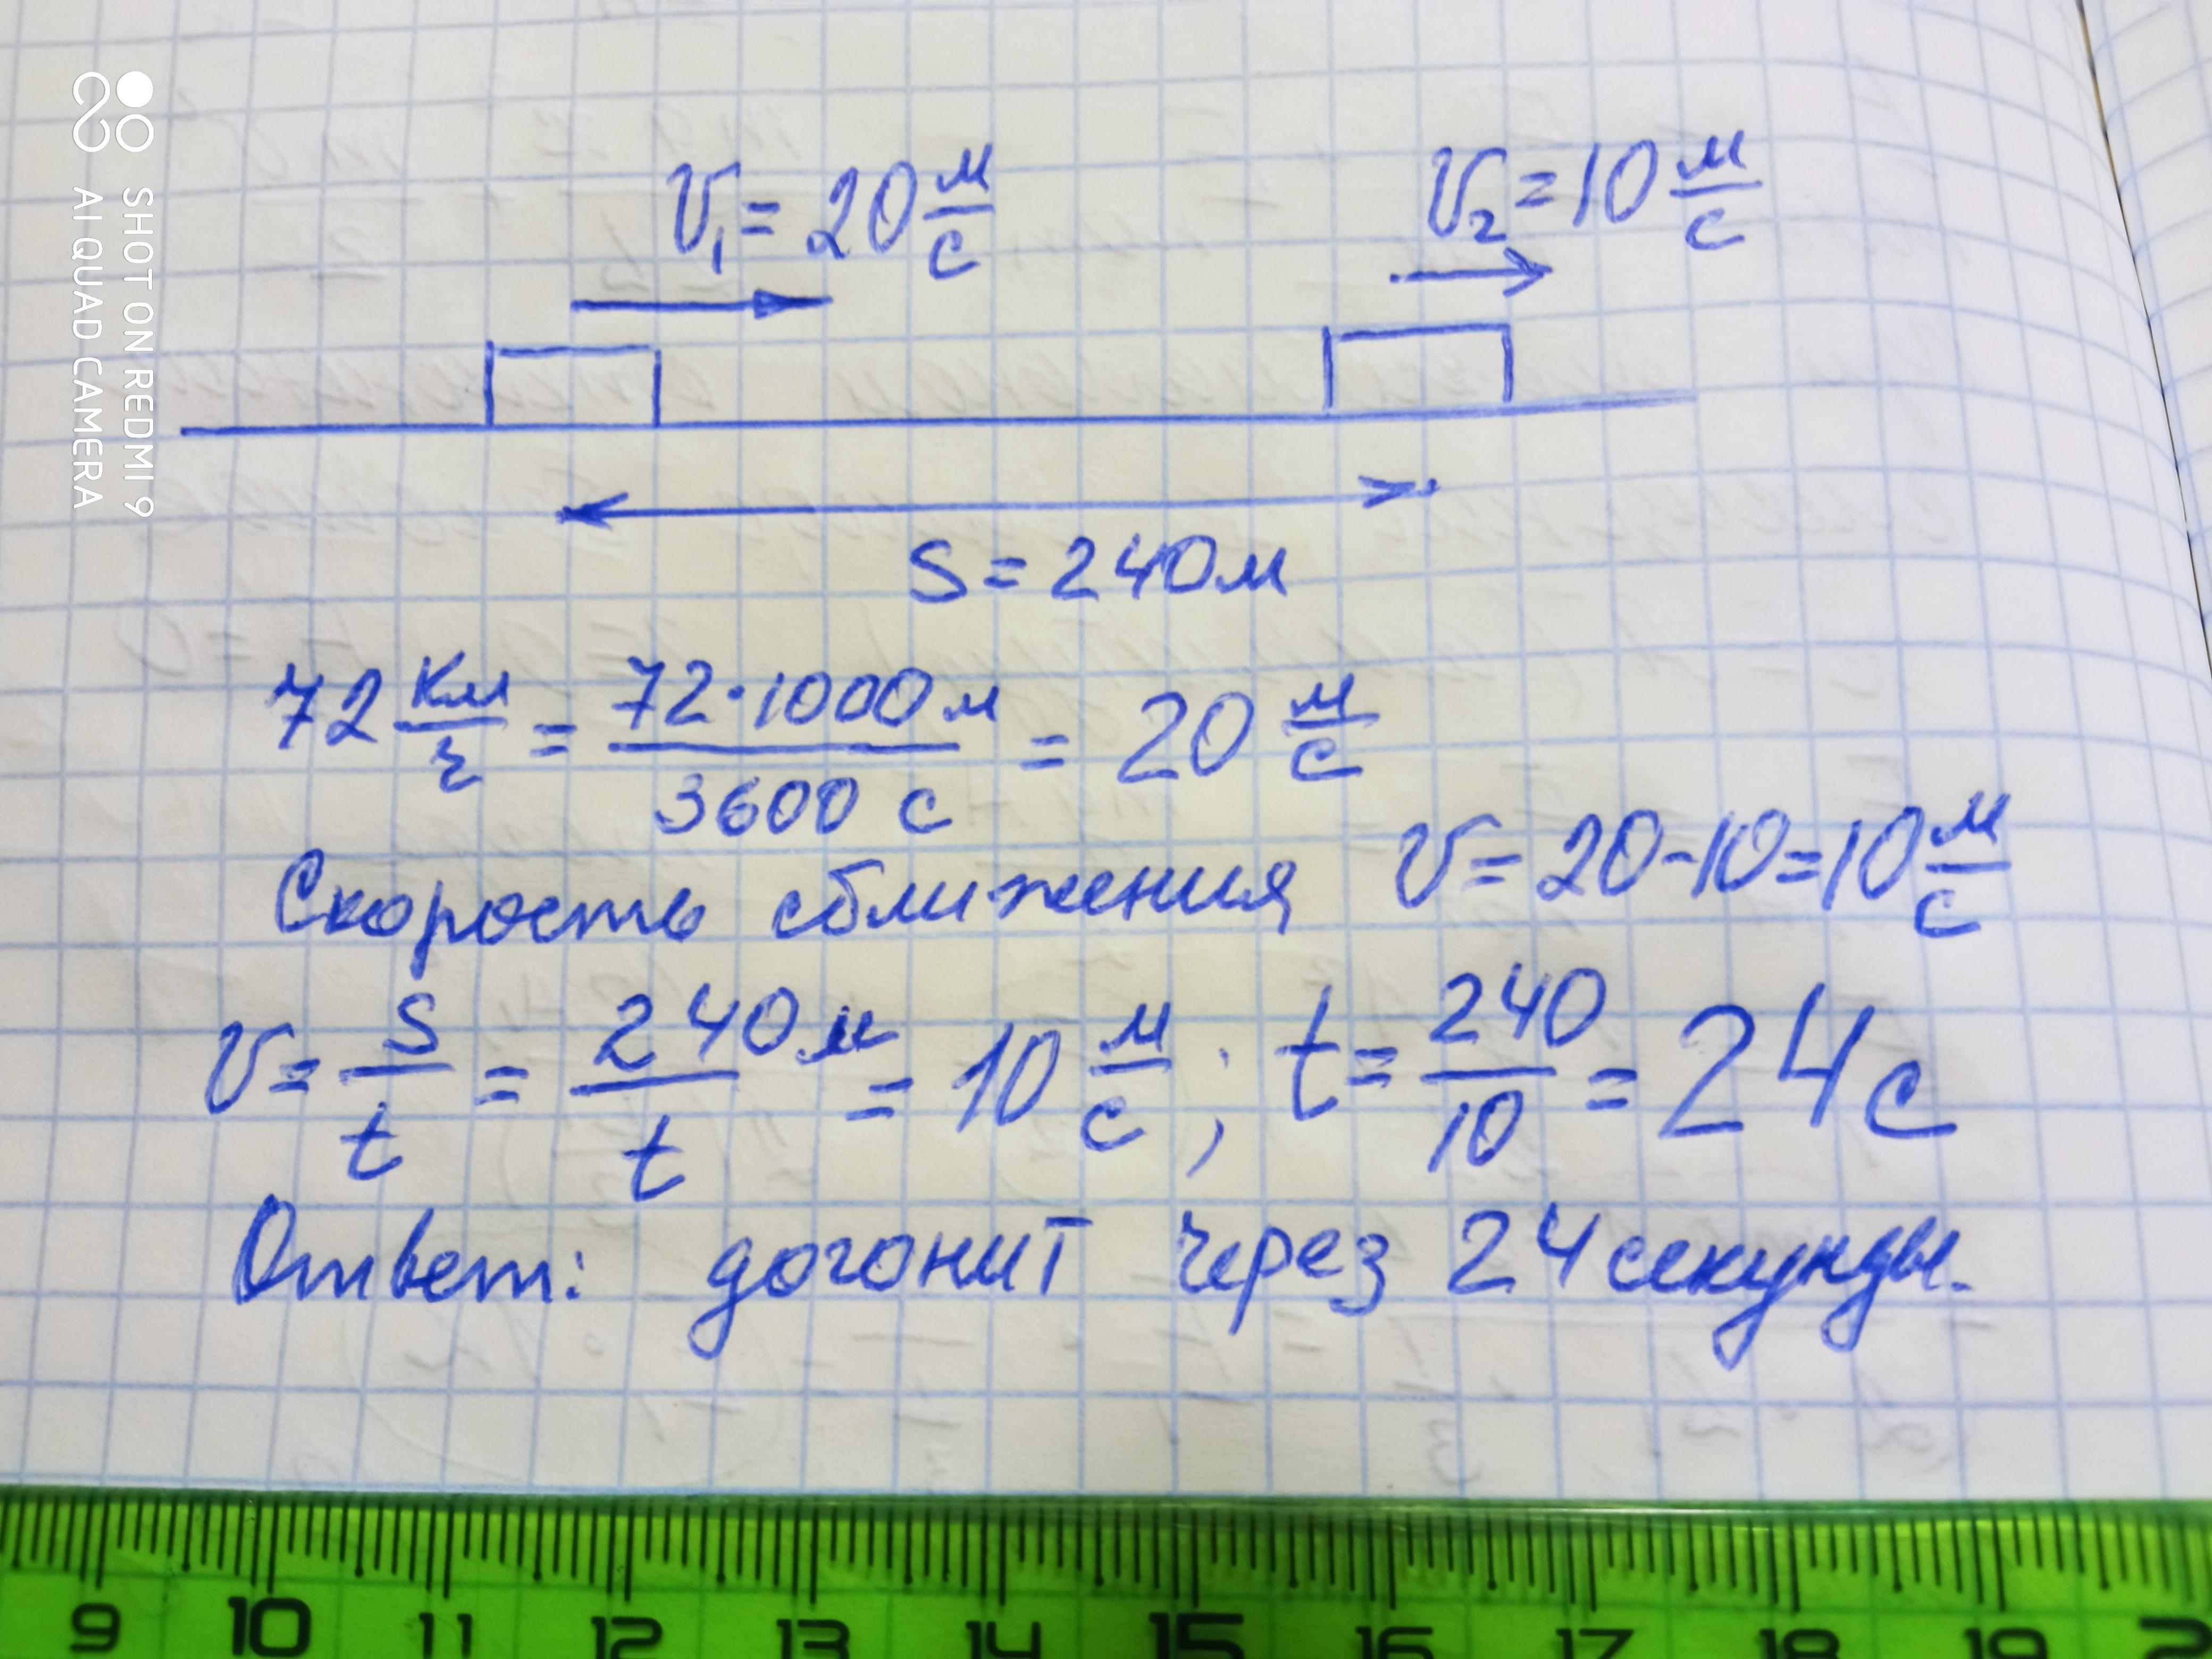 SHOT ON REDMI 9
AI QUAD CAMERA
V₁ = 20 м/с
V₂ = 10 м/с
S = 240м
72 км/ч = 72·1000м/3600 с = 20 м/с
Скорость сближения V = 20-10=10 м/с
V = S/t = 240 м/t = 10 м/с ; t = 240/10 = 24 с
Ответ: догонит через 24 секунды.
9 10 11 12 13 14 15 16 17 18 19